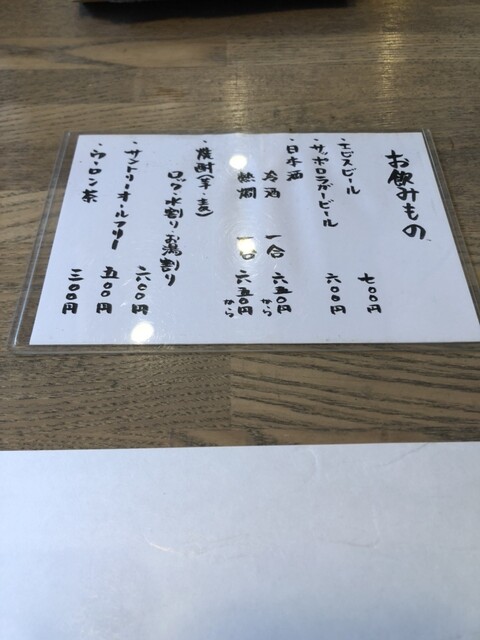 お飲みもの
・エビスビール 七〇〇円
・サッポロラガービール 六〇〇円
・日本酒
冷酒 一合 六五〇円から
熱燗 一合 六五〇円から
・焼酎(芋・麦)
ロック・水割り・お湯割り 六〇〇円
・サントリーオールフリー 五〇〇円
・ウーロン茶 三〇〇円